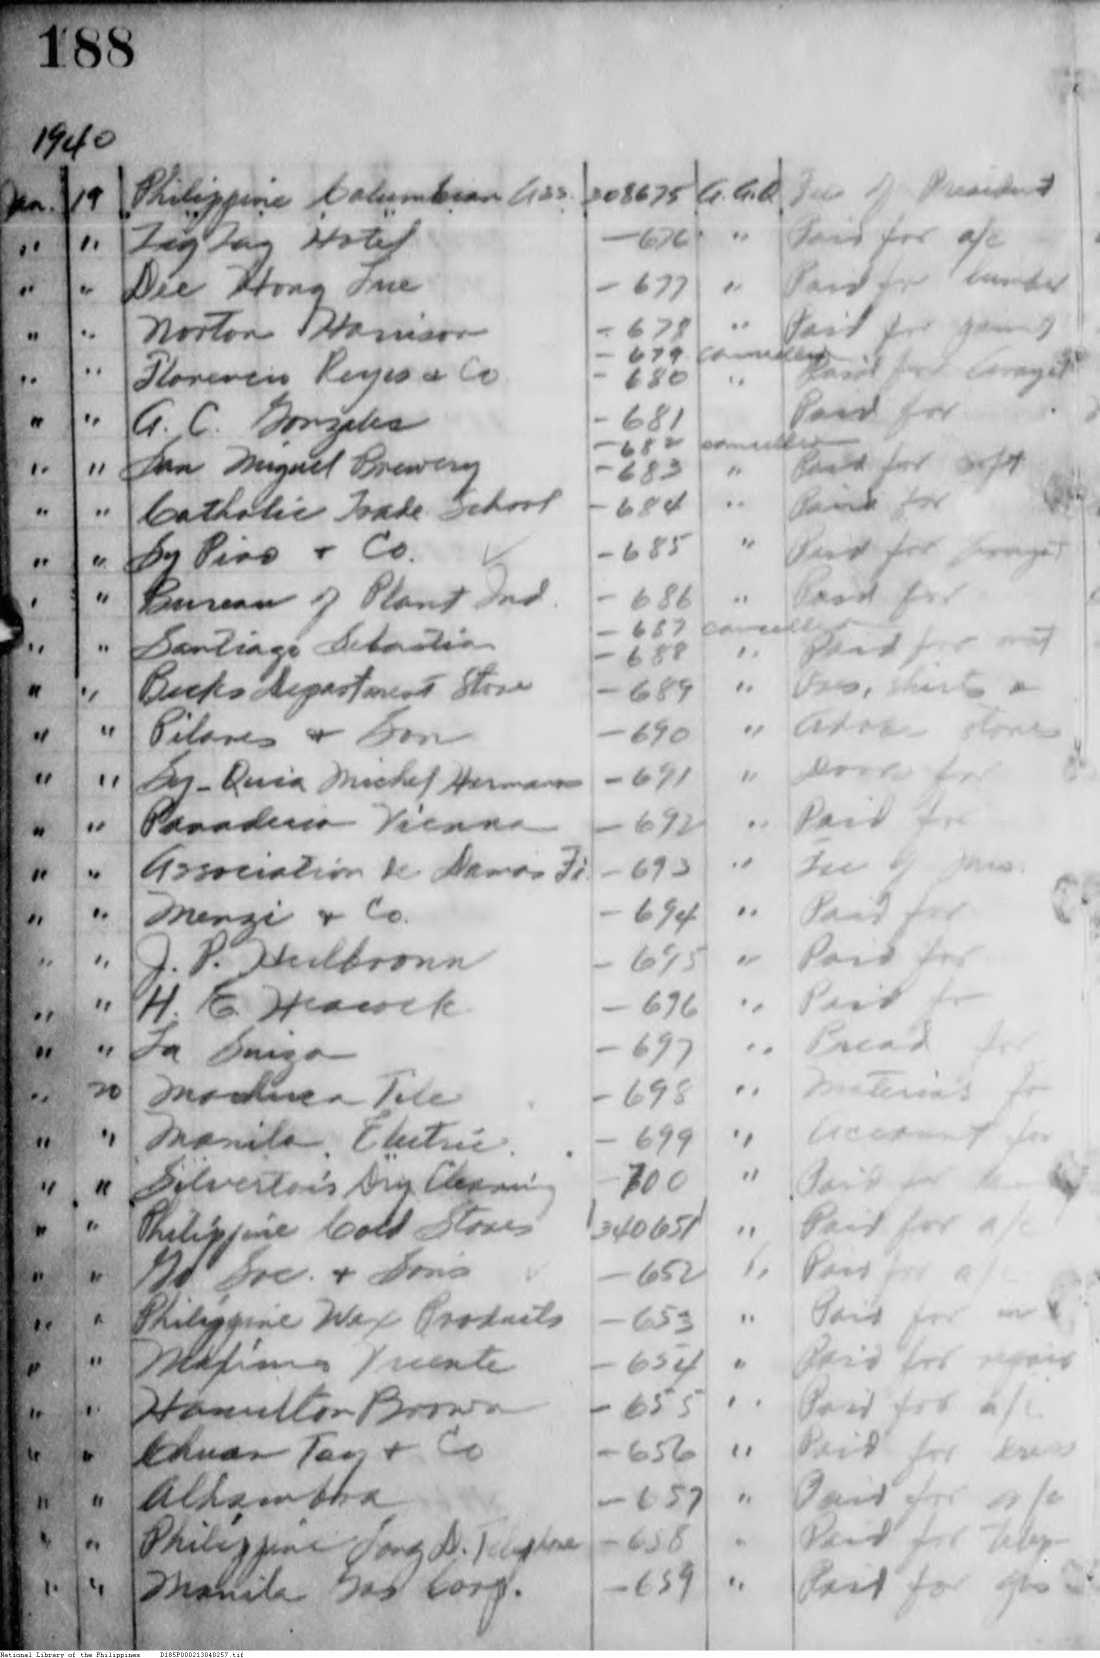 188
1940
Jan. 19 Philippine Columbian Ass. 308675 A.G.D. Fee of President
" " Zig Zag Hotel — 676 " Paid for a/c
" " Dee Hong Lue — 677 " Paid for lumber
" " Norton Harrison — 678 " Paid for
— 679 cancelled
" " Florencio Reyes & Co — 680 " Paid for
" " A. C. Gonzales — 681 Paid for
— 682 cancelled
" " San Miguel Brewery — 683 " Paid for soft
" " Catholic Trade School — 684 " Paid for
" " Sy Pioo & Co. — 685 " Paid for
" " Bureau of Plant Ind. — 686 " Paid for
— 687 cancelled
" " Santiago Sebastian — 688 " Paid for
" " Becks Department Store — 689 " shirts
" " Pilares & Son — 690 " stones
" " Sy-Quia Michel Hermanos — 691 " Doors for
" " Panaderia Vienna — 692 " Paid for
" " Association de Damas Fi — 693 " Fee of Mrs.
" " Menzi & Co. — 694 " Paid for
" " J. P. Heilbronn — 695 " Paid for
" " H. E. Heacock — 696 " Paid for
" " La Suiza — 697 " Bread for
" 20 Machuca Tile — 698 " Materials for
" " Manila Electric. — 699 " Account for
" " Silverto's Dry Cleaning — 700 " Paid for
" " Philippine Cold Stores 340651 " Paid for a/c
" " Go Soc. & Sons — 652 " Paid for a/c
" " Philippine Wax Products — 653 " Paid for
" " Maximo Vicente — 654 " Paid for repair
" " Hamilton Brown — 655 " Paid for a/c
" " Chuan Tay & Co — 656 " Paid for
" " Alhambra — 657 " Paid for a/c
" " Philippine Long D. Telephone — 658 " Paid for telep
" " Manila Gas Corp. — 659 " Paid for gas
National Library of the Philippines D185P000213040257.tif